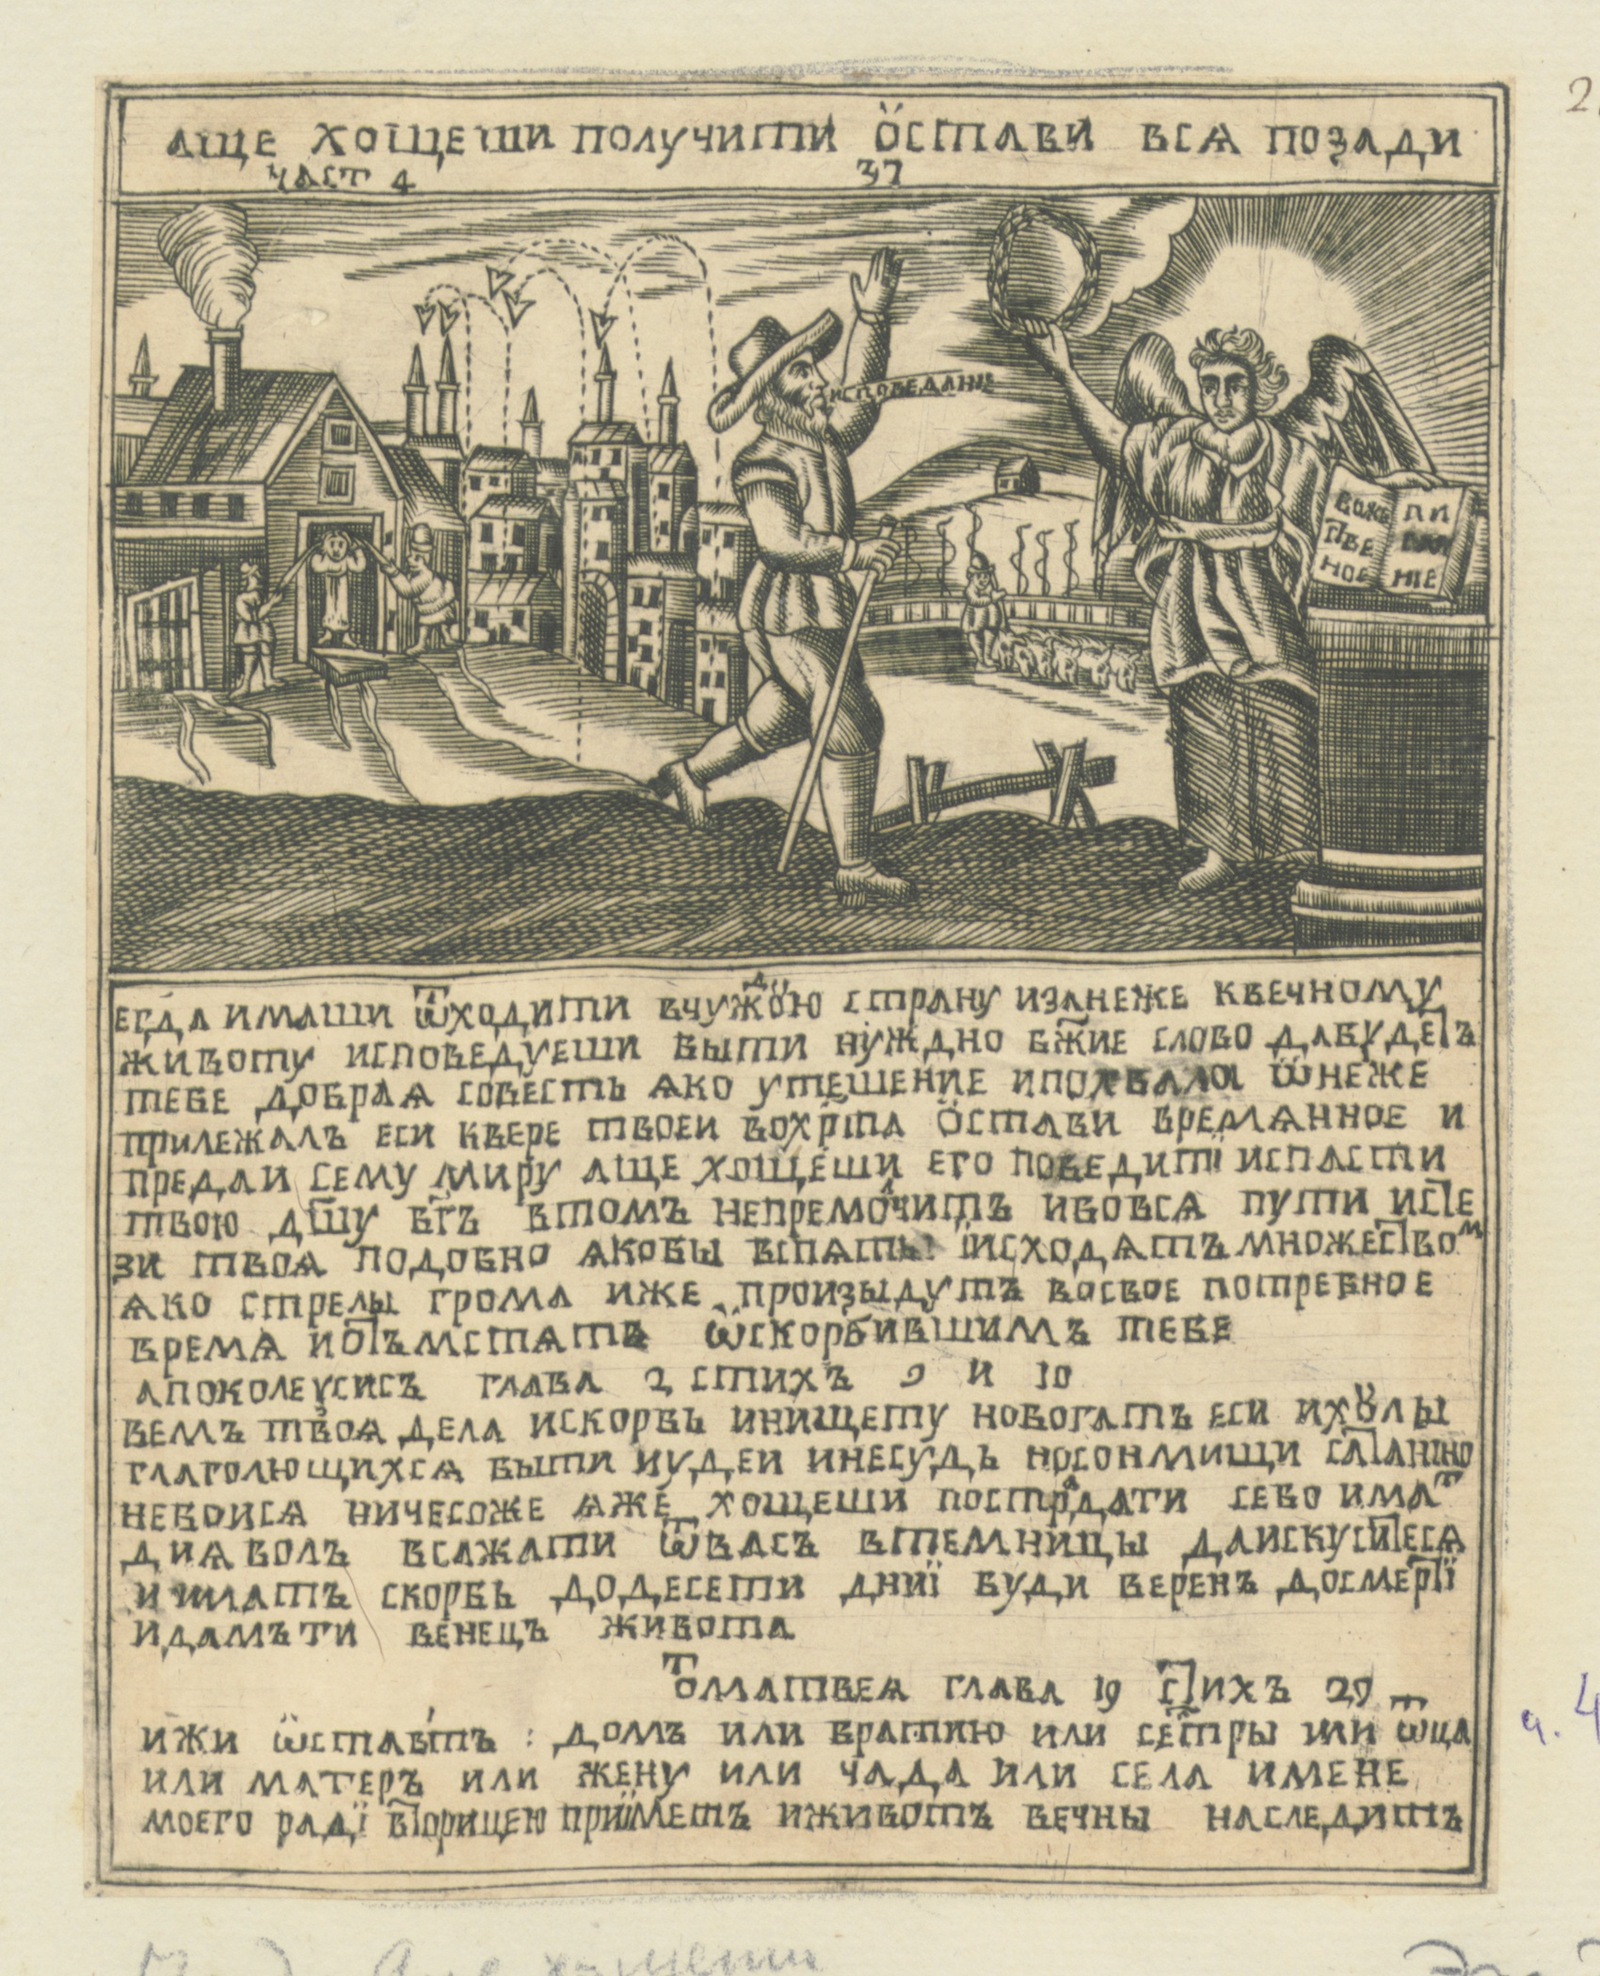 аще хощеши получити ѻстави вся позади
част 4 37
исповедание
божес
тве
ное
пи
сан
ние
егда имаши ѿходити вчуждою страну изанеже квечному
животу исповедуеши быти нуждно бжие слово дабудетъ
тебе добрая совесть яко утешение ипохвала ѡнеже
прилежалъ еси квере твоеи вохрта ѻстави времянное и
предаи сему миру аще хощеши его победити испасти
твою дшу бгъ втомъ непремолчитъ ибовся пути исте
зи твоя подобно якобы вспять исходятъ множеством
яко стрелы грома иже произыдутъ восвое потребное
время иотъмстятъ ѡскорбившимъ тебе
апоколеѵсисъ глава 2 стихъ 9 и 10
вемъ твоя дела искорбь инищету нобогатъ еси ихулы
глаголющихся быти иудеи инесудь носонмищи сатанино
небоися ничесоже яже хощеши пострадати себо имат
дияволъ всажати ѿвасъ втемницы даискуситеся
и иматъ скорбь додесети дниї буди веренъ досмертї
идамъти венецъ живота
ѿматвея глава 19 стихъ 29
ижи ѡставитъ : домъ или братию или сестры или ѿца
или матеръ или жену или чада или села имене
моего радї вторицею приїметъ иживотъ вечны наследитъ